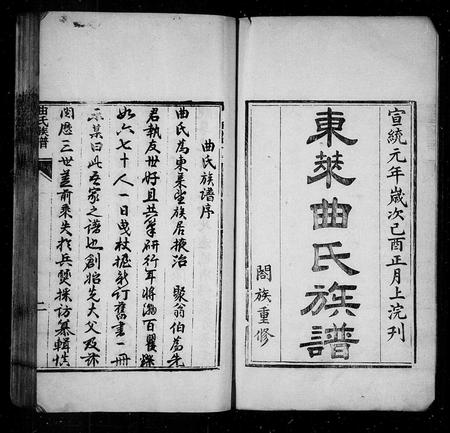 宣統元年歲次己酉正月上浣刊
東萊曲氏族譜
闔族重修
曲氏族譜序
曲氏為東萊望族居掖治 聚翁伯為先
君執友世好且共筆研行年將週百矍鑠
如六七十人一日曳杖攜新訂舊書一冊
示某曰此吾家之譜也創始先大父及茲
閱歷三世蓋前乘失於兵燹採訪纂輯慎
曲氏族譜
二